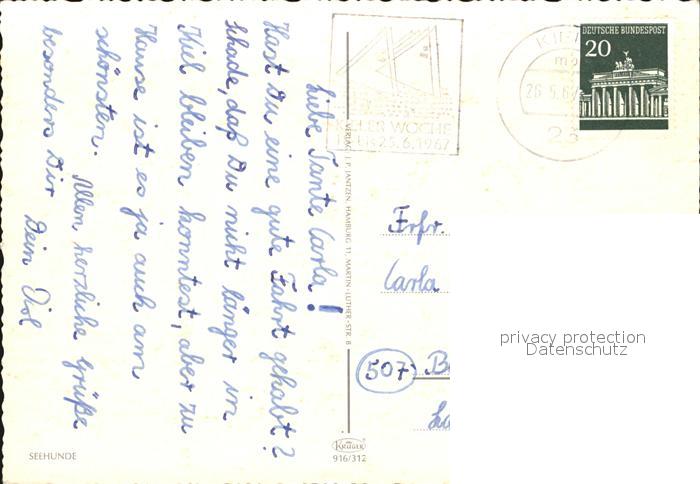 Liebe Tante Carla!
Hast Du eine gute Fahrt gehabt?
Schade, daß Du nicht länger in
Kiel bleiben konntest, aber zu
Hause ist es ja auch am
schönsten. Allen herzliche Grüße
besonders Dir Dein
SEEHUNDE
VERLAG J. P. JANTZEN, HAMBURG 11, MARTIN-LUTHER-STR. 8
KRÜGER
916/312
KIELER WOCHE
25.6.1967
KIEL
26.5.67
23
DEUTSCHE BUNDESPOST
20
Frfr.
Carla
507
privacy protection
Datenschutz